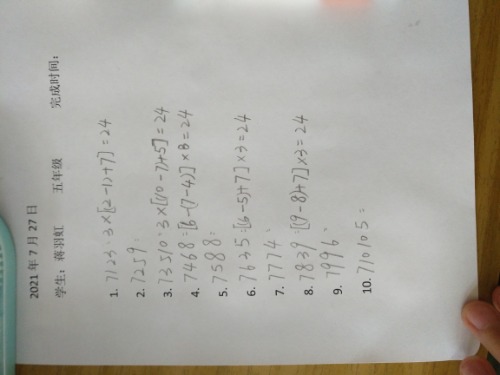 2021 年 7 月 27 日
学生：蒋羽虹 五年级 完成时间：
1. 7123：3×[2-1)+7]=24
2. 7259：
3. 73510：3×[(10-7)+5]=24
4. 7468：[6-(7-4)]×8=24
5. 7588：
6. 7635：[(6-5)+7]×3=24
7. 7774：
8. 7839：[(9-8)+7]×3=24
9. 7996：
10. 710105=